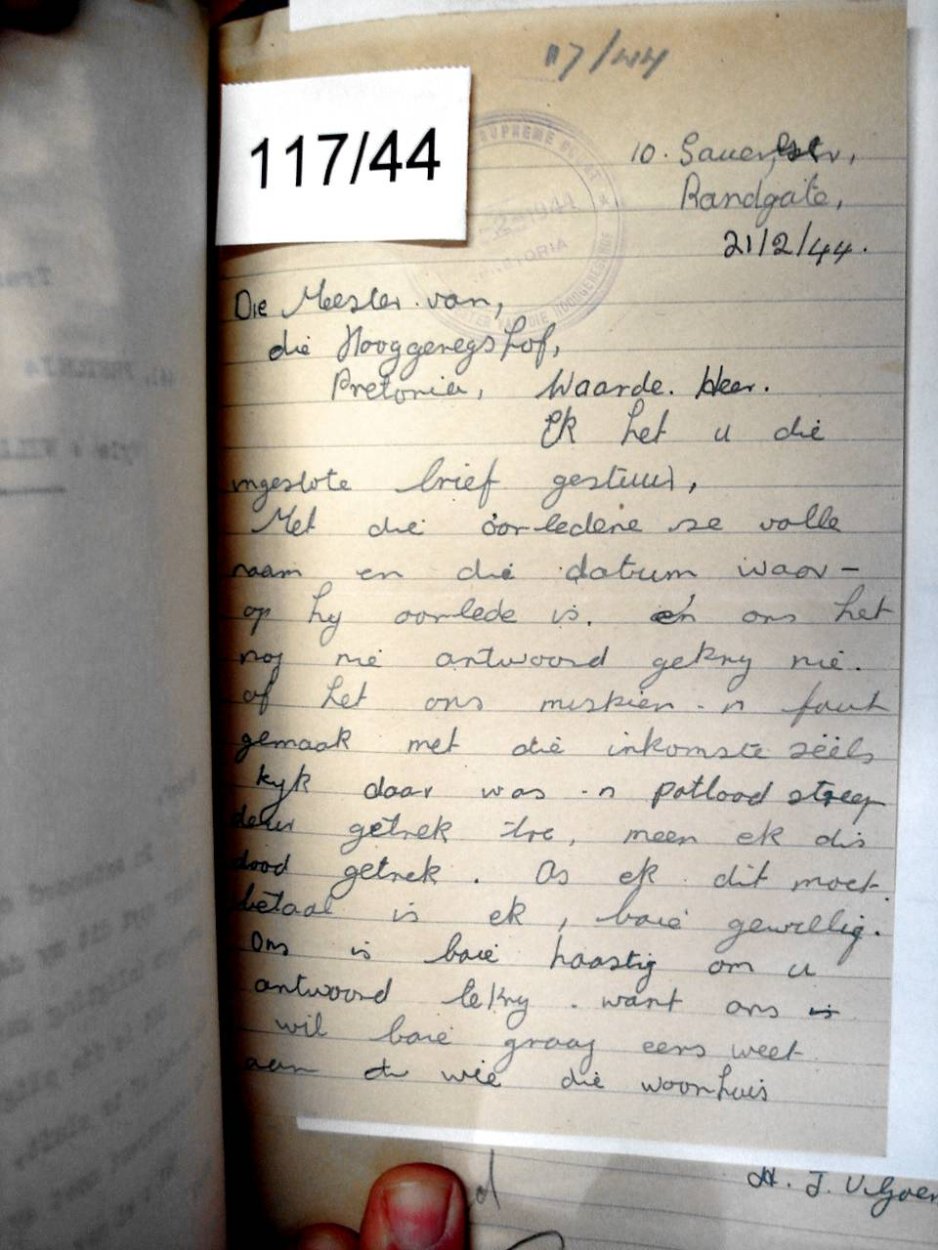 117/44
117/44
SUPREME
1944
PRETORIA
DIE HOOGGEREGSHOF
10. Sauer str,
Randgate,
21/2/44.
Die Meester van,
die Hooggeregshof,
Pretoria, Waarde. Heer.
Ek het u die
ingeslote brief gestuur,
Met die oorledene se volle
naam en die datum waar-
op hy oorlede is. en ons het
nog nie antwoord gekry nie.
of het ons miskien -n fout
gemaak met die inkomste seëls
kyk daar was -n potlood streep
deur getrek, meen ek dis
dood getrek. As ek dit moet
betaal is ek, baie gewillig.
Ons is baie haastig om u
antwoord tekry. want ons is
wil baie graag eers weet
aan wie die woonhuis
H. J. V.